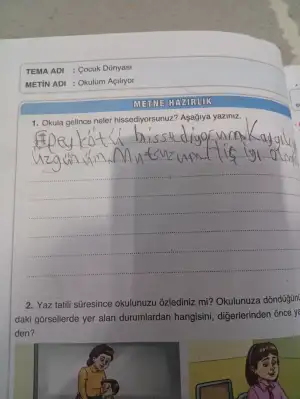 TEMA ADI : Çocuk Dünyası
METİN ADI : Okulum Açılıyor
METNE HAZIRLIK
1. Okula gelince neler hissediyorsunuz? Aşağıya yazınız.
Epey kötü hissediyorum. Kaygılı
üzgünüm. Mutsuzum. Hiç iyi
2. Yaz tatili süresince okulunuzu özlediniz mi? Okulunuza döndüğün
daki görsellerde yer alan durumlardan hangisini, diğerlerinden önce y
den?